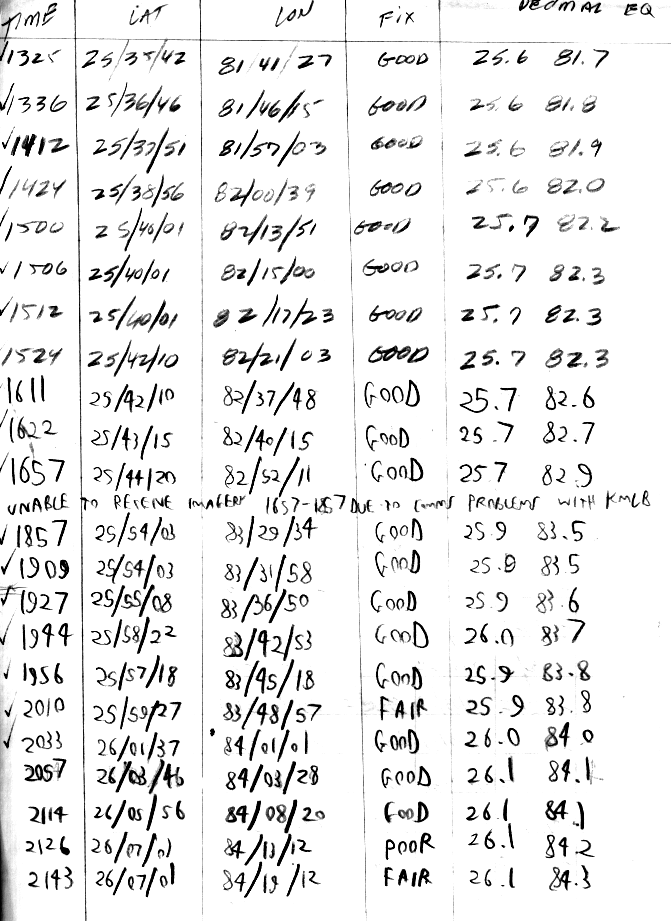 TIME LAT LON FIX DECIMAL EQ
✓1325 25/35/42 81/41/27 GOOD 25.6 81.7
✓1336 25/36/46 81/46/15 GOOD 25.6 81.8
✓1412 25/37/51 81/57/03 GOOD 25.6 81.9
/1424 25/38/56 82/00/39 GOOD 25.6 82.0
/1500 25/40/01 82/13/51 GOOD 25.7 82.2
✓1506 25/40/01 82/15/00 GOOD 25.7 82.3
✓1512 25/40/01 82/17/23 GOOD 25.7 82.3
✓1524 25/42/10 82/21/03 GOOD 25.7 82.3
✓1611 25/42/10 82/37/48 GOOD 25.7 82.6
✓1622 25/43/15 82/40/15 GOOD 25.7 82.7
✓1657 25/44/20 82/52/11 GOOD 25.7 82.9
UNABLE TO RECEIVE IMAGERY 1657-1857 DUE TO COMMS PROBLEMS WITH KMLB
✓1857 25/54/03 83/29/34 GOOD 25.9 83.5
✓1909 25/54/03 83/31/58 GOOD 25.9 83.5
✓1927 25/55/08 83/36/50 GOOD 25.9 83.6
✓1944 25/58/22 83/42/53 GOOD 26.0 83.7
✓1956 25/57/18 83/45/18 GOOD 25.9 83.8
✓2010 25/59/27 83/48/57 FAIR 25.9 83.8
✓2033 26/01/37 84/01/01 GOOD 26.0 84.0
2057 26/03/46 84/03/28 GOOD 26.1 84.1
2114 26/05/56 84/08/20 GOOD 26.1 84.1
2126 26/07/01 84/13/12 POOR 26.1 84.2
2143 26/07/01 84/19/12 FAIR 26.1 84.3